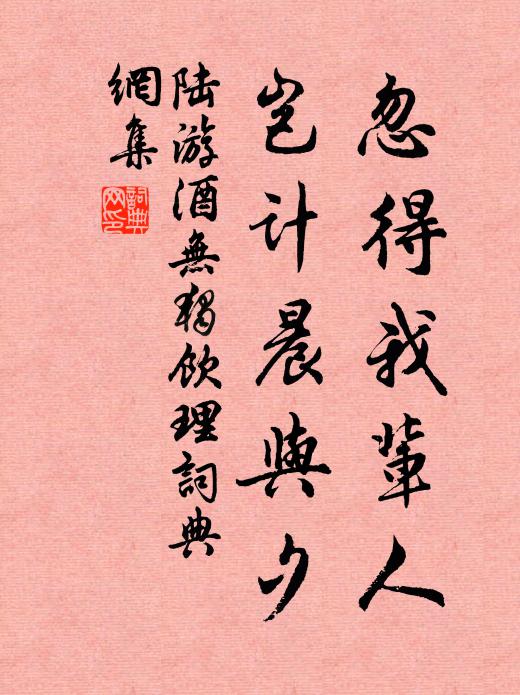 忽得我輩人
豈计晨與夕
陆游酒無獨飲理詞典
網集
詞典
网印